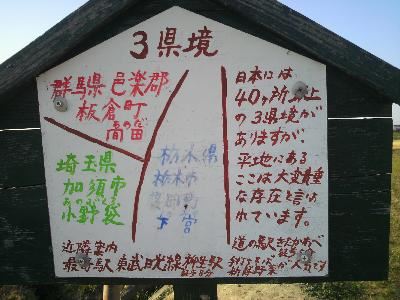 3県境
群馬県邑楽郡
板倉町
海老瀬
埼玉県
加須市
小野袋
栃木県
栃木市
藤岡町
下宮
日本には
40ヶ所以上
の3県境が
ありますが、
平地にある
ここは大変貴重
な存在と言わ
れています。
近隣案内
最寄駅 東武日光線 柳生駅
道の駅 きたかわべ